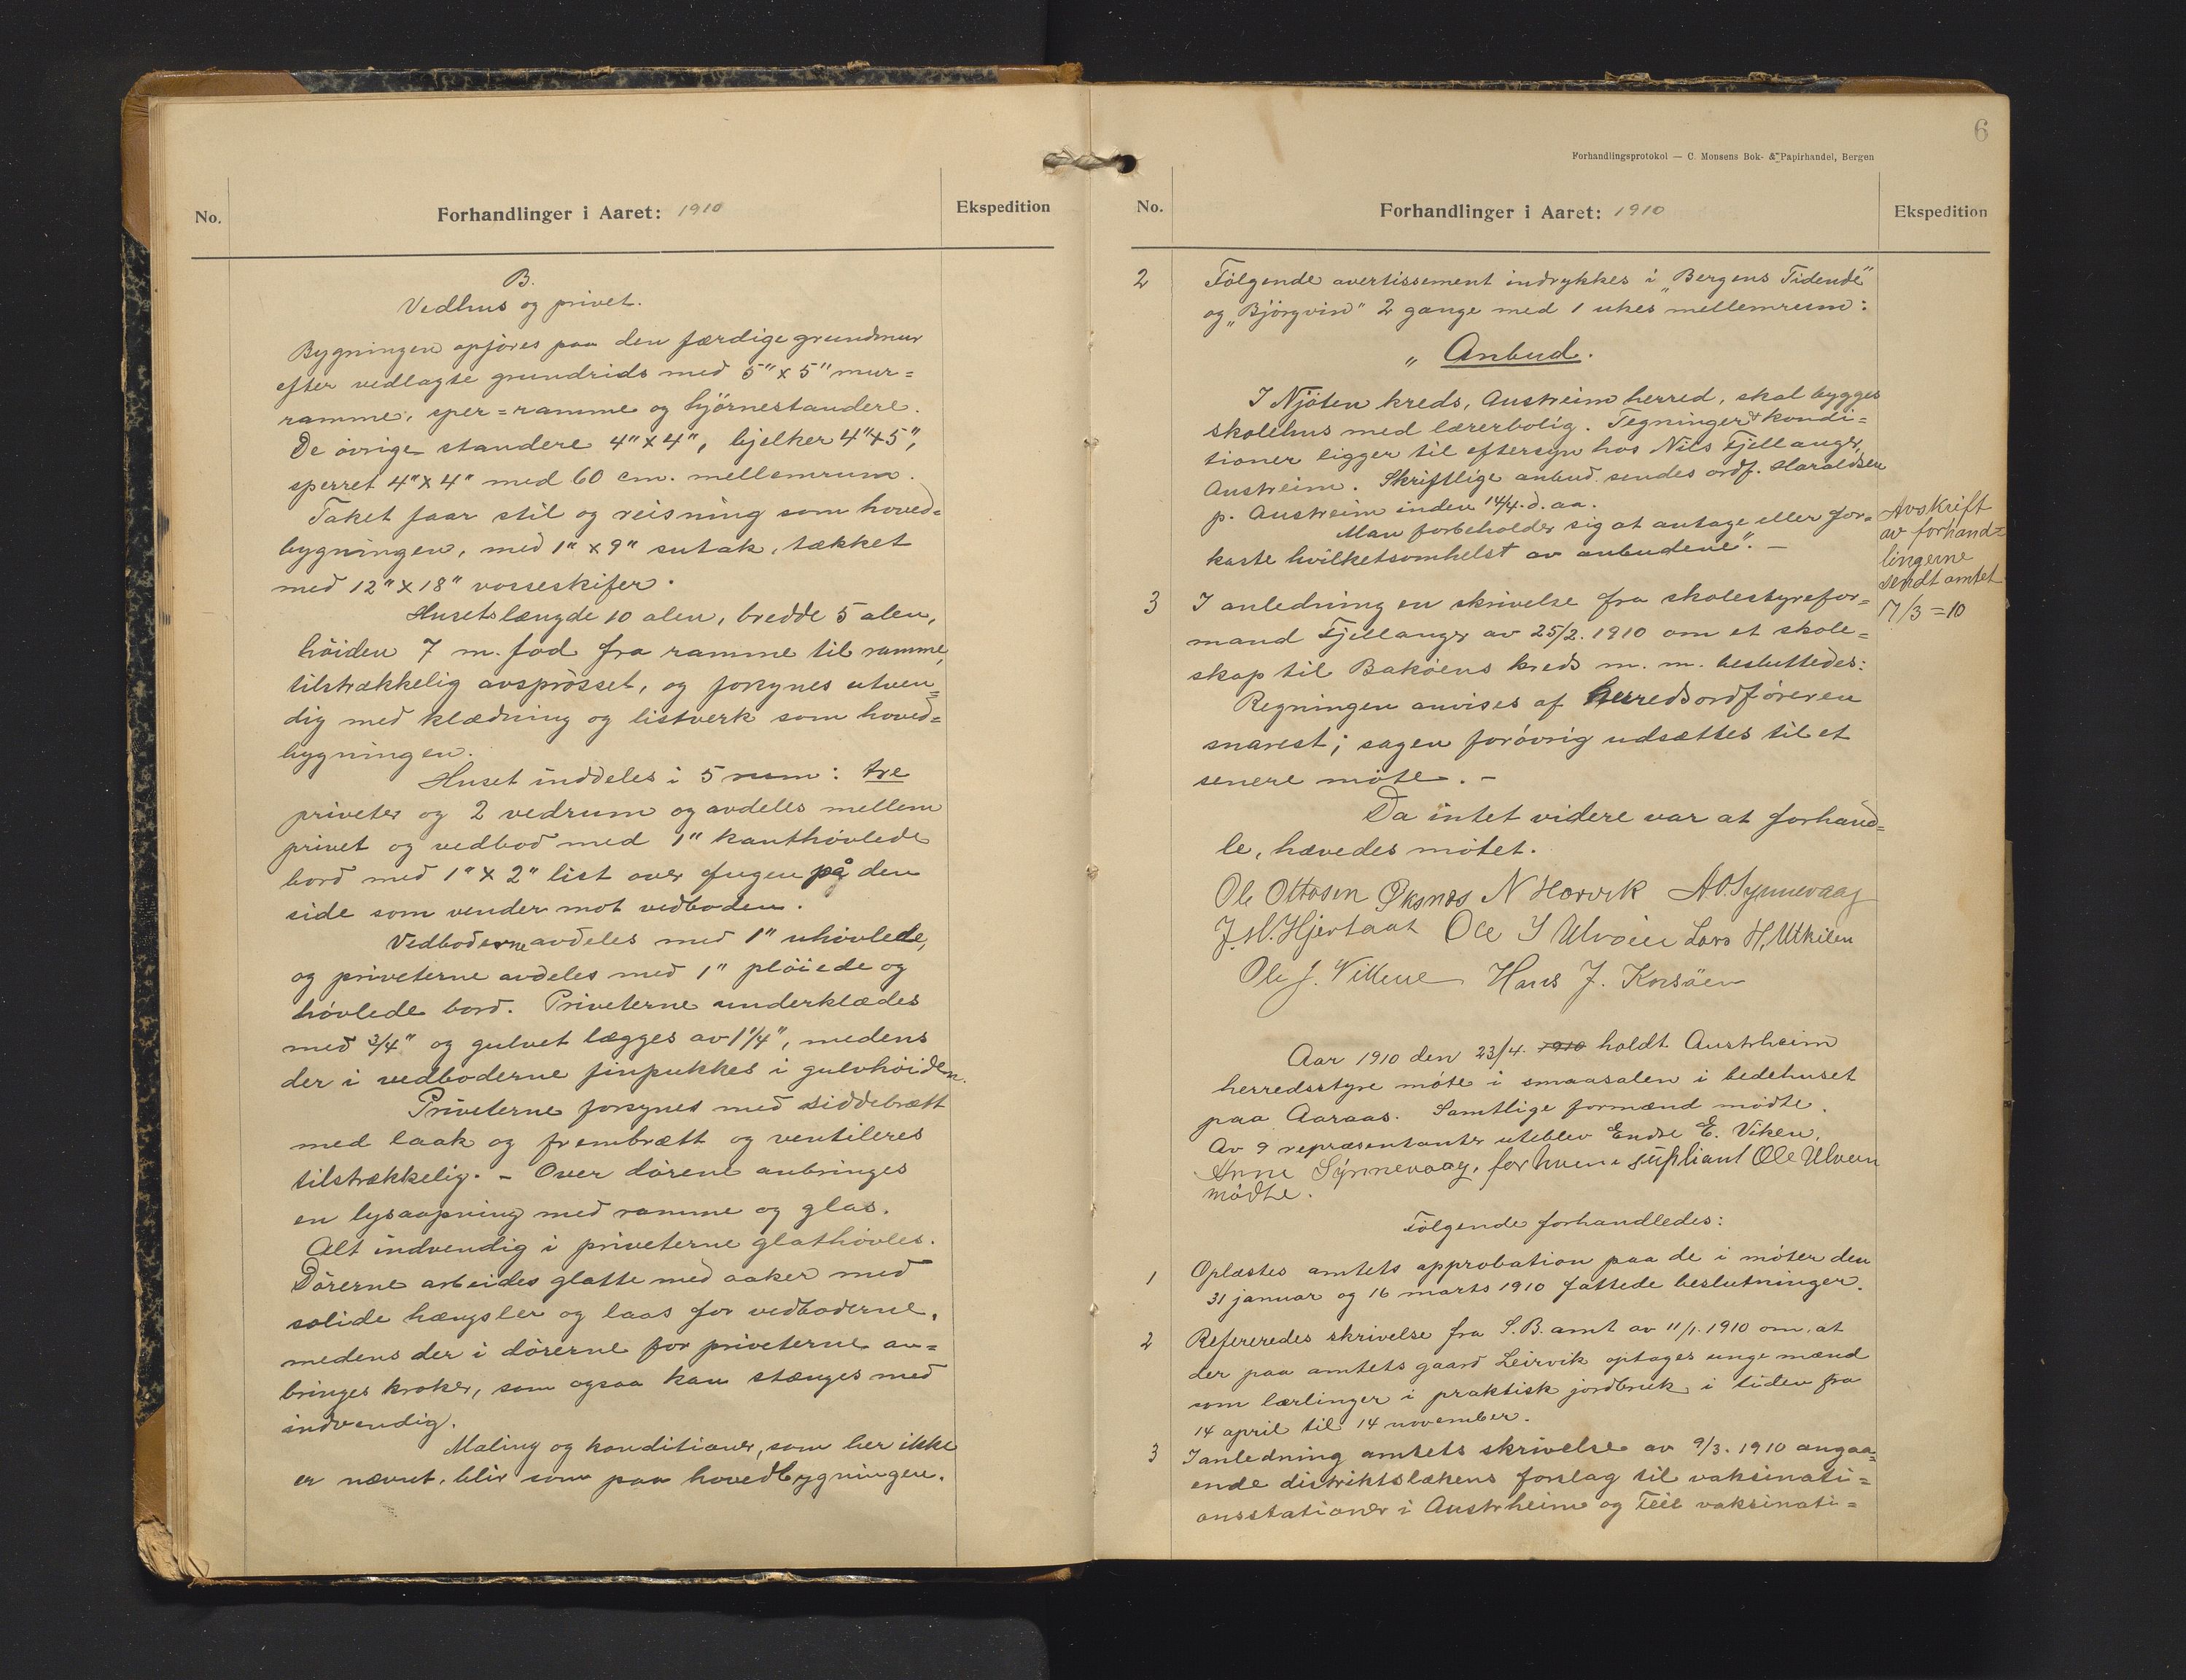 No.
Forhandlinger i Aaret: 1910
Ekspedition
B.
Vedhus og privet.
Bygningen opføres paa den færdige grundmur
efter vedlagte grundrids med 5" x 5" mur=
ramme, sper=ramme og hjörnestandere.
De øvrige standere 4" x 4", bjelker 4" x 5",
sperret 4" x 4" med 60 cm. mellemrum.
Taket faar stil og reisning som hoved=
bygningen, med 1" x 9" sutak, tækket
med 12" x 18" vosseskifer.
Husets længde 10 alen, bredde 5 alen,
höiden 7 m. fod fra ramme til ramme,
tilstrækkelig avsprösset, og forsynes utven=
dig med klædning og listverk som hoved=
bygningen.
Huset inddeles i 5 rum: tre
priveter og 2 vedrum og avdeles mellem
privet og vedbod med 1" kanthövlede
bord med 1" x 2" list over fugen på den
side som vender mot vedboden.
Vedboderne avdeles med 1" uhövlede,
og priveterne avdeles med 1" plöiede og
hövlede bord. Priveterne underklædes
med 3/4" og gulvet lægges av 1 1/4", medens
der i vedboderne finpukkes i gulvhöiden.
Priveterne forsynes med siddebrætt
med laak og frembrætt og ventileres
tilstrækkelig. - Over dörene anbringes
en lysaapning med ramme og glas.
Alt indvendig i priveterne glathövles.
Dörerne arbeides glatte med aaker med
solide hængsler og laas for vedboderne,
medens der i dörerne for priveterne an=
bringes kroker, som ogsaa kan stænges med
indvendig.
Maling og konditioner, som her ikke
er nævnt, blir som paa hovedbygningen.
6
Forhandlingsprotokol — C. Monsens Bok- & Papirhandel, Bergen
No.
Forhandlinger i Aaret: 1910
Ekspedition
2 Fölgende avertissement indrykkes i "Bergens Tidende"
og "Björgvin" 2 gange med 1 ukes mellemrum:
" Anbud.
I Njöten kreds, Austreim herred, skal bygges
skolehus med lærerbolig. Tegninger & kondi=
tioner ligger til eftersyn hos Nils Fjellanger,
Austreim. Skriftlige anbud sendes ordf. Haraldsen
p. Austreim inden 14/4. d. aa.
Man forbeholder sig at antage eller for=
kaste hvilketsomhelst av anbudene". -
Avskrift
av forhand=
lingerne
sendt amtet
17/3 = 10
3 I anledning en skrivelse fra skolestyrefor=
mand Fjellanger av 25/2. 1910 om et skole=
skap til Bakøens kreds m. m. besluttedes:
Regningen anvises af herredsordføreren
snarest; sagen forövrig udsættes til et
senere möte. -
Da intet videre var at forhand=
le, hævedes mötet.
Ole Ottosen Øksnes N Horvik A O. Synnevaag
J. M. Hjertaas Ole I Ulvöien Lars H. Utkilen
Ole J. Villene Hans J. Korsöen
Aar 1910 den 23/4. 1910 holdt Austrheim
herredsstyre möte i smaasalen i bedehuset
paa Aaraas. Samtlige formænd mödte.
Av 9 repræsentanter uteblev Endre E. Viken,
Anne Synnevaag, for hvem supliant Ole Ulveen
mödte.
Fölgende forhandledes:
1 Oplæstes amtets approbation paa de i möter den
31 januar og 16 marts 1910 fattede beslutninger.
2 Refereredes skrivelse fra S. B. amt av 11/1. 1910 om, at
der paa amtets gaard Leirvik optages unge mænd
som lærlinger i praktisk jordbruk i tiden fra
14 april til 14 november.
3 I anledning amtets skrivelse av 9/3. 1910 angaa=
ende distriktslækens forslag til vaksinati=
onsstationer i Austrheim og Feie vaksinati=